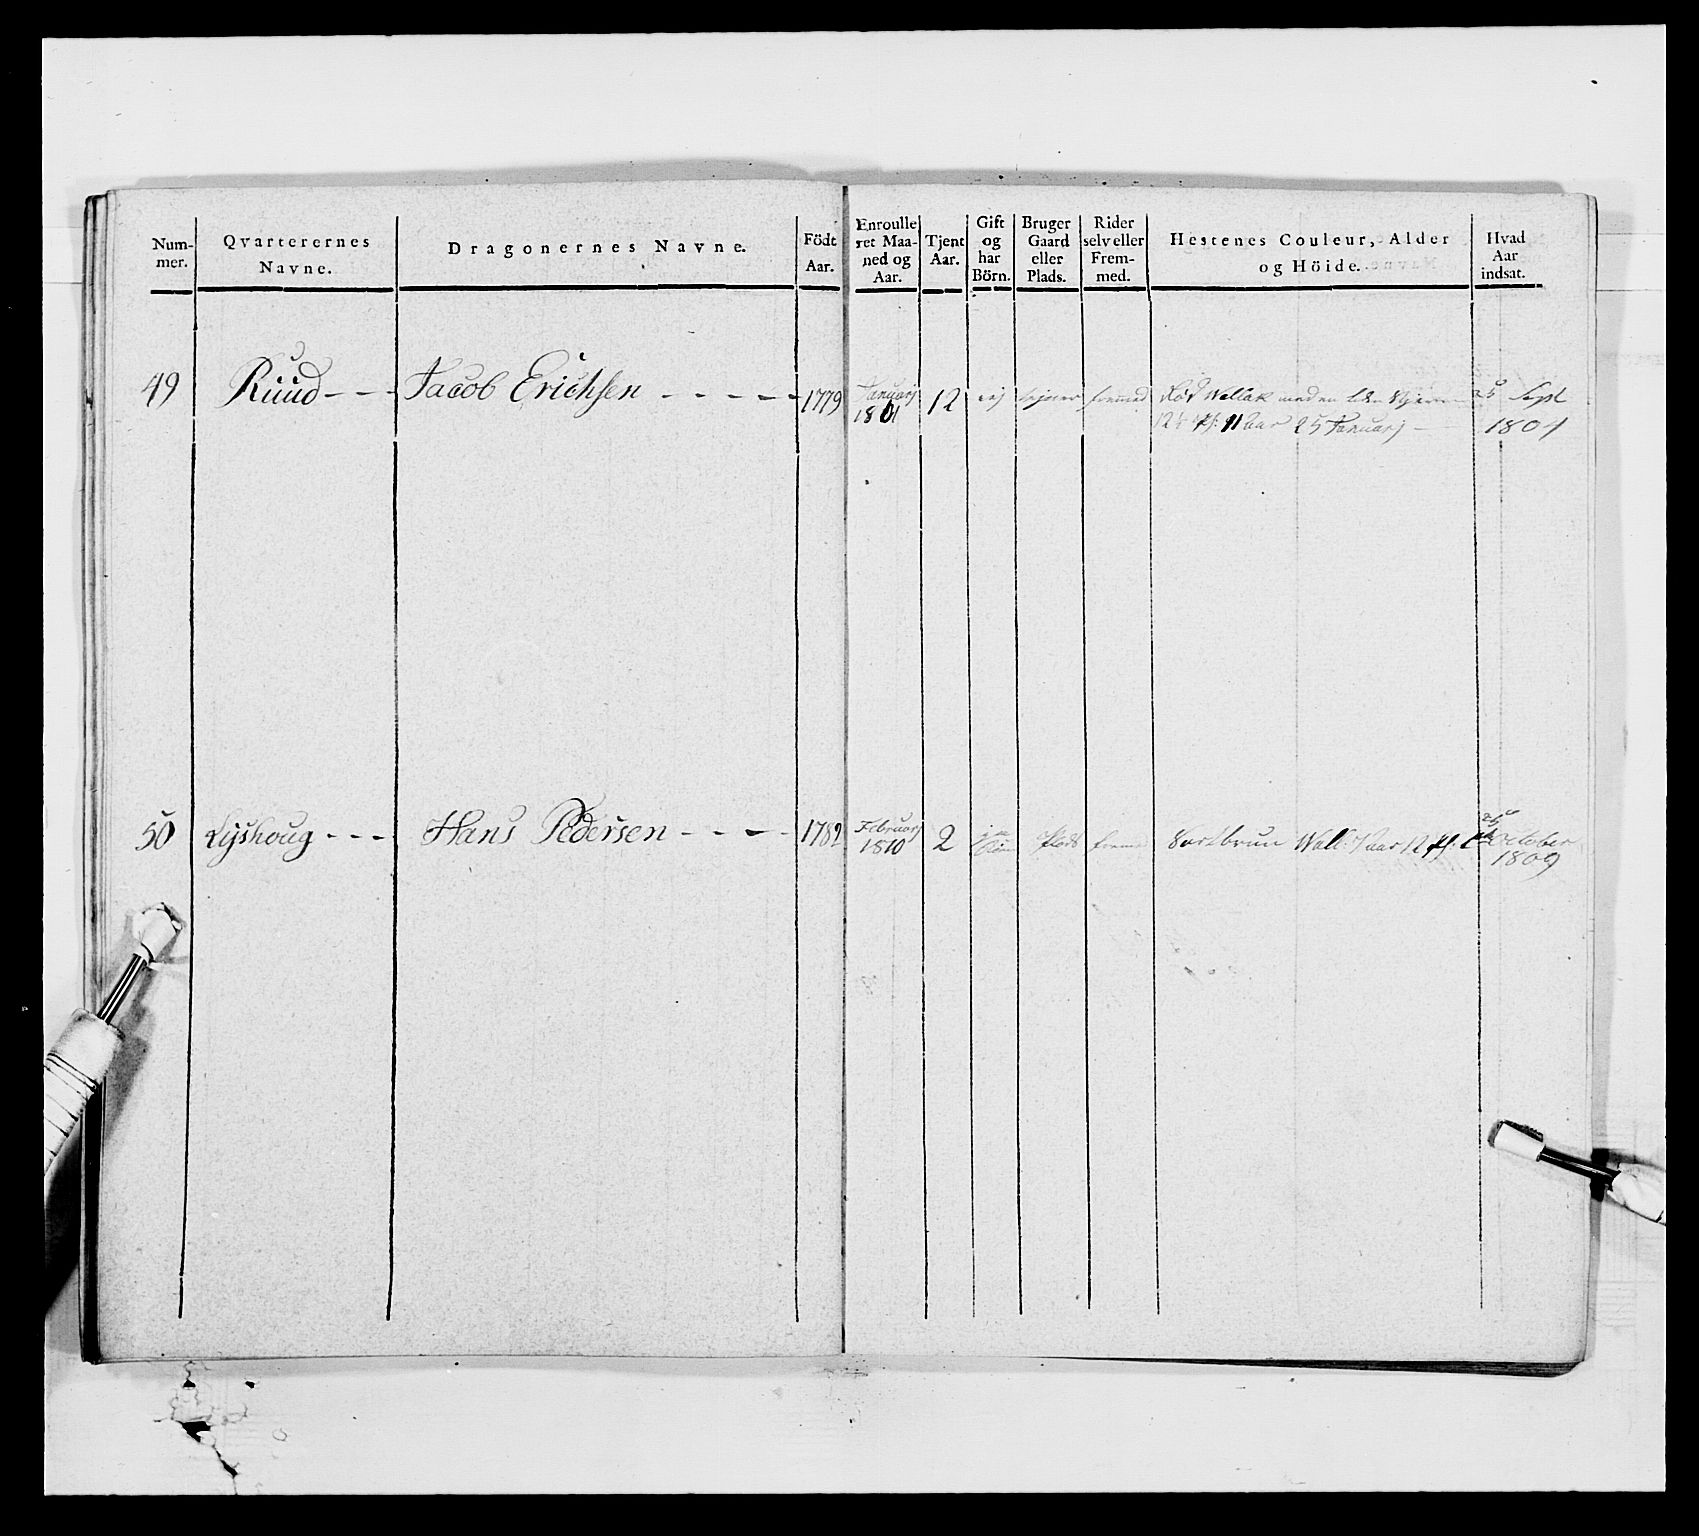 Num-
mer.
Qvarterernes
Navne.
Dragonernes Navne.
Födt
Aar.
Enroulle
ret Maa-
ned og
Aar.
Tjent
Aar.
Gift
og
har
Börn.
Bruger
Gaard
eller
Plads.
Rider
selv eller
Frem-
med.
Hestenes Couleur, Alder
og Höide.
Hvad
Aar
indsat.
49 Ruud - - - Jacob Erichsen - - - - - 1779 Januarj 12 fremmed Rød Wallak med en liden Stjerne Sept
1801 11 Aar 25 Januarj 1804
50 Lyshoug - - - Hans Pedersen - - - - 1782 Februarj 2 Plads Sortbrun Wall: 7 aar 12 October
1810 1809